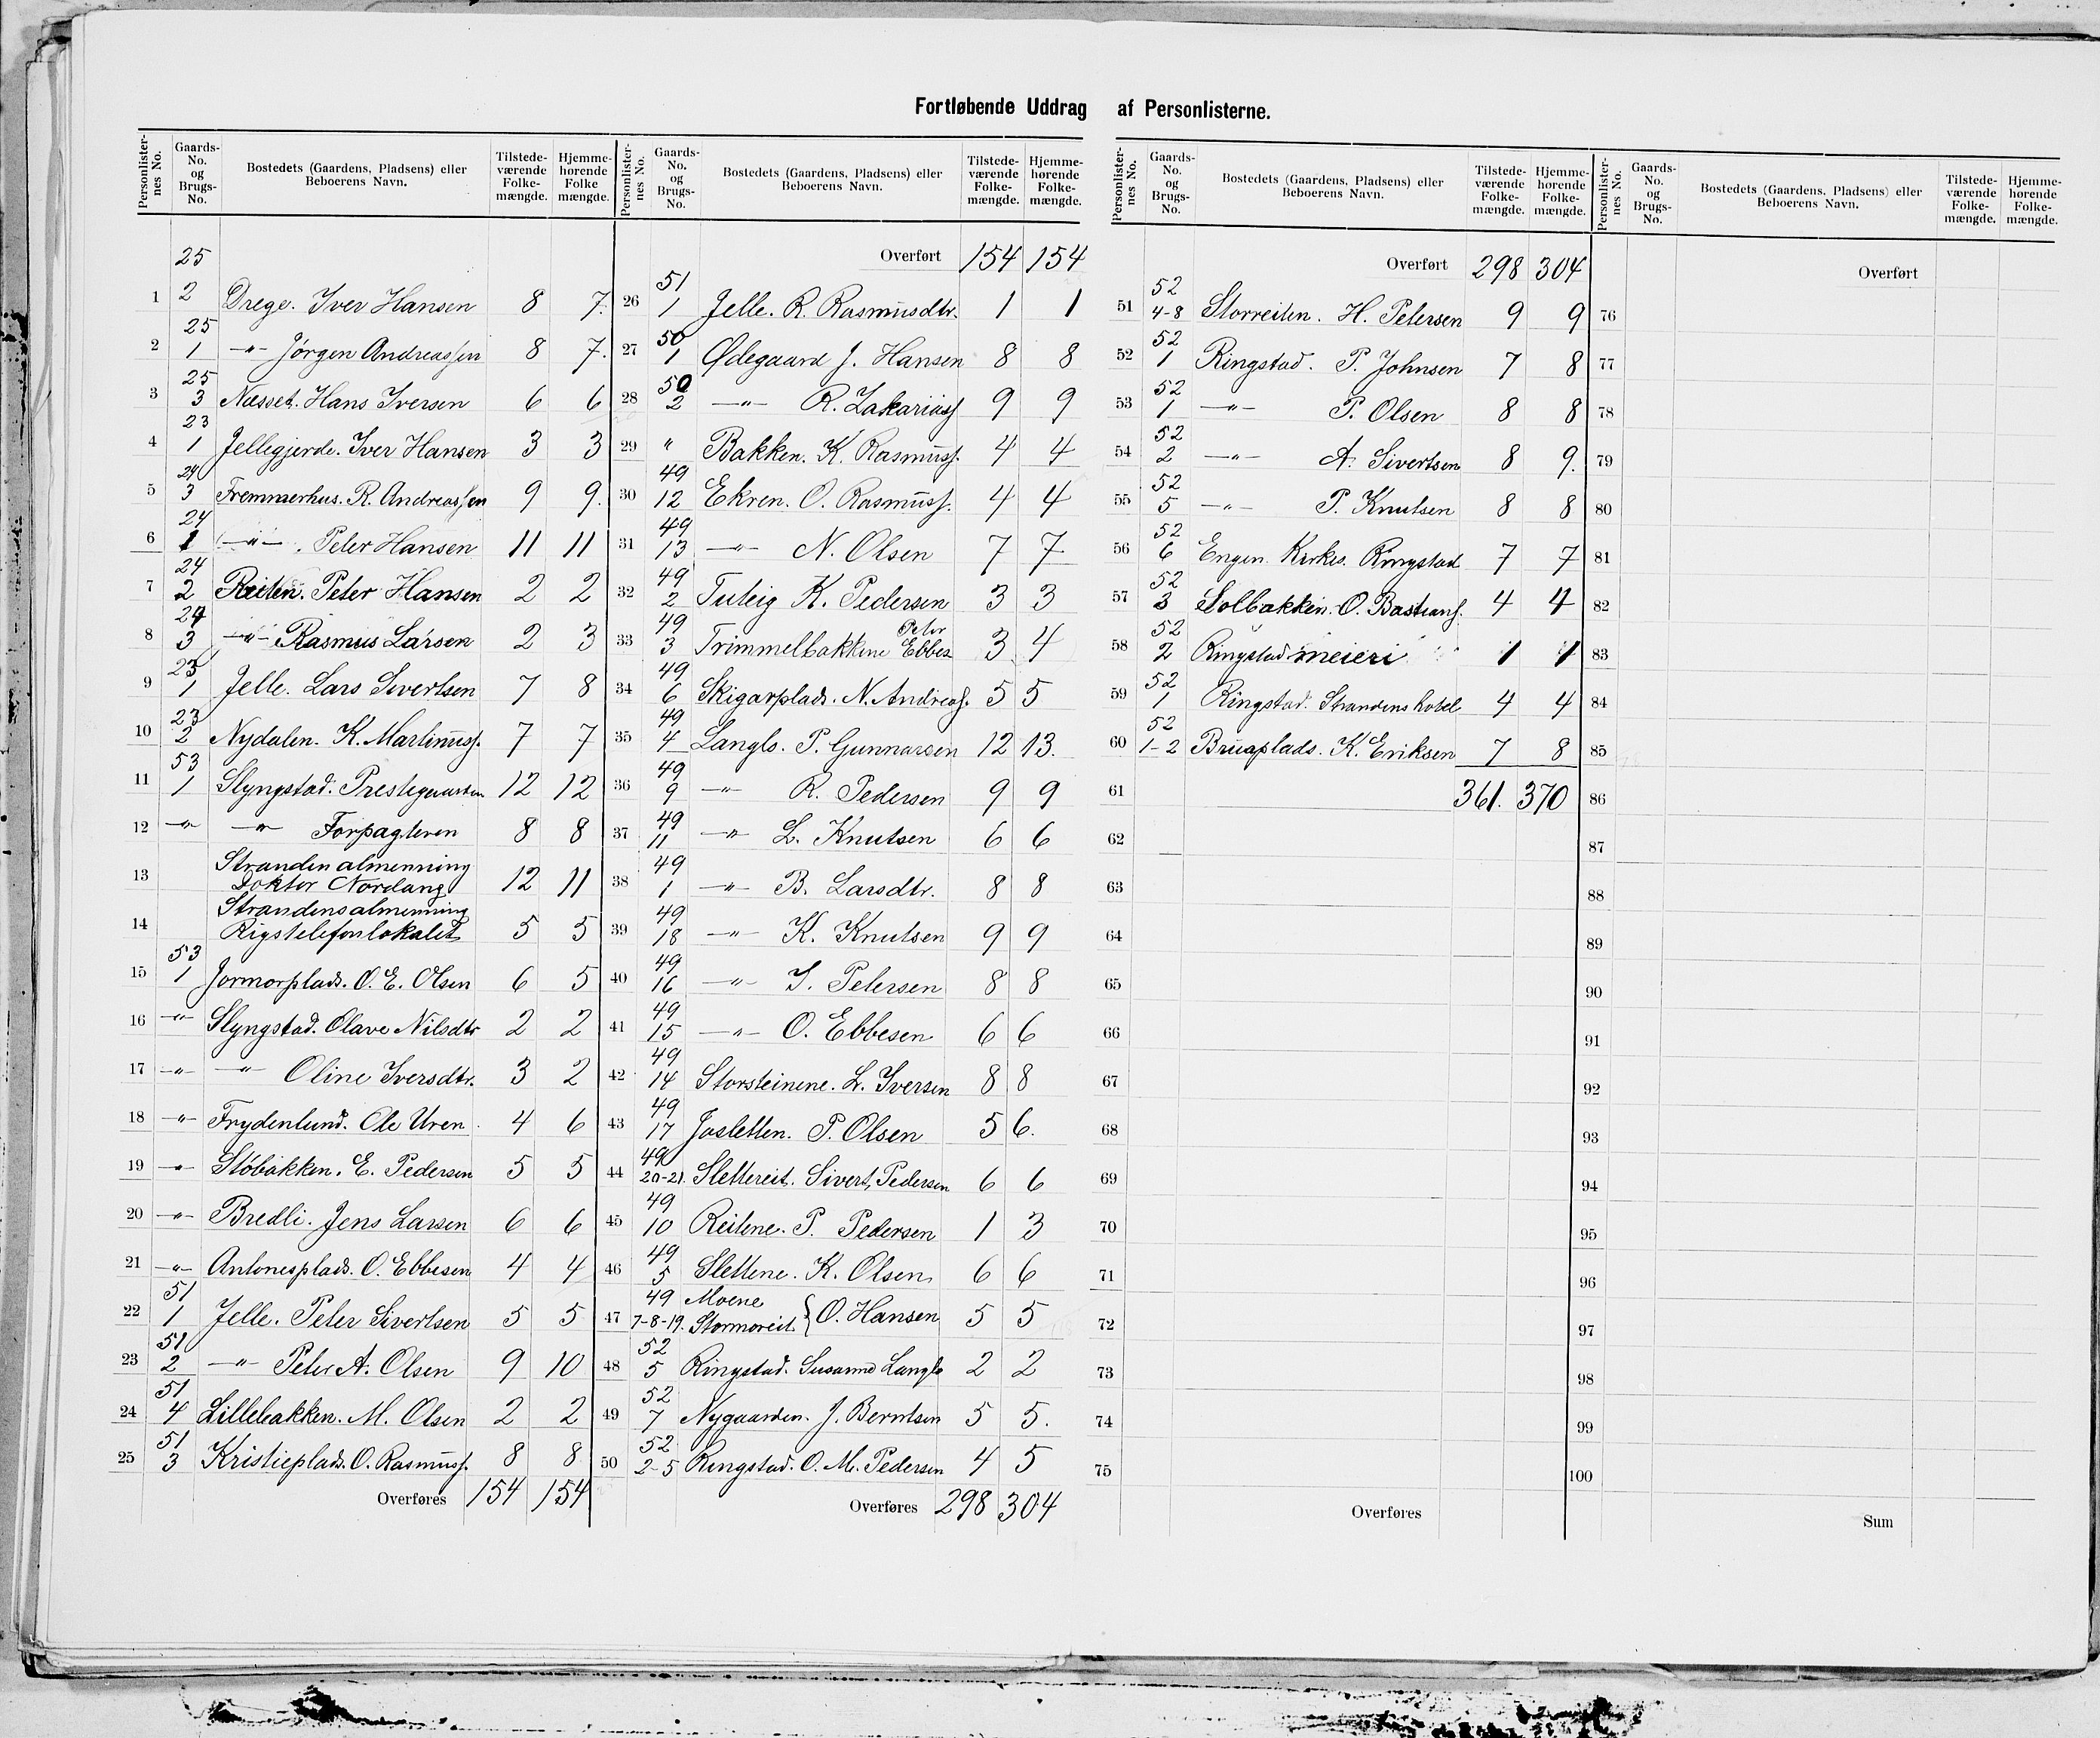 Fortløbende Uddrag af Personlisterne.
Personlisternes No. Gaards-No. og Brugs-No. Bostedets (Gaardens, Pladsens) eller Beboerens Navn. Tilstedeværende Folkemængde. Hjemmehørende Folkemængde.
1 25 2 Drege. Iver Hansen 8 7.
2 25 1 -"- Jørgen Andreassen 8 7.
3 25 3 Næsset. Hans Iversen 6 6
4 23 1 Jellegjerde. Iver Hansen 3 3
5 24 3 Fremmerhus. R. Andreassen 9 9.
6 24 1 -"- . Peter Hansen 11 11
7 24 2 Reiten. Peter Hansen 2 2
8 24 3 -"- Rasmus Larsen 2 3
9 23 1 Jelle. Lars Sivertsen 7 8
10 23 2 Nydalen. K. Martinuss. 7 7
11 53 1 Slyngstad. Prestegaarden 12 12
12 -"- -"- Forpagteren 8 8
13 Stranden almenning
Doktor Nordang 12 11
14 Strandens almenning
Rigstelefonlokalet 5 5
15 53 1 Jormorplads. O. E. Olsen 6 5
16 -"- Slyngstad. Olave Nilsdtr 2 2
17 -"- -"- Oline Iversdtr. 3 2
18 -"- Frydenlund. Ole Uren 4 6
19 -"- Støbakken. E. Pedersen 5 5
20 -"- Bredli. Jens Larsen 6 6
21 -"- Antonesplads. O. Ebbesen 4 4
22 51 1 Jelle. Peter Sivertsen 5 5
23 51 2 -"- Peter A. Olsen 9 10
24 51 4 Lillebakken. M. Olsen 2 2
25 51 3 Kristieplads. O. Rasmuss. 8 8
Overføres 154 154
Personlisternes No. Gaards-No. og Brugs-No. Bostedets (Gaardens, Pladsens) eller Beboerens Navn. Tilstedeværende Folkemængde. Hjemmehørende Folkemængde.
Overført 154 154
26 51 1 Jelle. R. Rasmusdtr. 1 1
27 50 1 Ødegaard J. Hansen 8 8
28 50 2 -"- R. Zakariass 9 9
29 " Bakken. K. Rasmuss. 4 4
30 49 12 Ekren. O. Rasmuss. 4 4
31 49 13 -"- N. Olsen 7 7
32 49 2 Tuteig K. Pedersen 3 3
33 49 3 Trimmelbakkene Peter Ebbes 3 4
34 49 6 Skigarplads. N. Andreass. 5 5
35 49 4 Langlo. P. Gunnarsen 12 13.
36 49 9 -"- R. Pedersen 9 9
37 49 11 -"- L. Knutsen 6 6
38 49 1 -"- B. Larsdtr. 8 8
39 49 18 -"- K. Knutsen 9 9
40 49 16 -"- I. Petersen 8 8
41 49 15 -"- O. Ebbesen 6 6
42 49 14 Storsteinene. L. Iversen 8 8
43 49 17 Josletten. P. Olsen 5 6.
44 49 20-21. Slettereit. Sivert Pedersen 6 6
45 49 10 Reitene. P. Pedersen 1 3
46 49 5 Slettene. K. Olsen 6 6
47 49 7-8-19. Moene
Stormoreit } O. Hansen 5 5
48 52 5 Ringstad. Susanne Langlo 2 2
49 52 7 Nygaarden. J. Berntsen 5 5.
50 52 2-5 Ringstad. O. M. Pedersen 4 5
Overføres 298 304
Personlisternes No. Gaards-No. og Brugs-No. Bostedets (Gaardens, Pladsens) eller Beboerens Navn. Tilstedeværende Folkemængde. Hjemmehørende Folkemængde.
Overført 298 304
51 52 4-8 Storreiten. H. Petersen 9 9
52 52 1 Ringstad. P. Johnsen 7 8
53 52 1 -"- P. Olsen 8 8
54 52 2 -"- A. Sivertsen 8 9.
55 52 5 -"- P. Knutsen 8 8
56 52 6 Engen Kirkes. Ringstad 7 7
57 52 3 Solbakken. O. Bastians. 4 4
58 52 2 Ringstad meieri 1 1
59 52 1 Ringstad. Strandens hotel 4 4
60 52 1-2 Bruaplads. K. Eriksen 7 8
61 361. 370
62
63
64
65
66
67
68
69
70
71
72
73
74
75
Overføres
Personlisternes No. Gaards-No. og Brugs-No. Bostedets (Gaardens, Pladsens) eller Beboerens Navn. Tilstedeværende Folkemængde. Hjemmehørende Folkemængde.
Overført
76
77
78
79
80
81
82
83
84
85
86
87
88
89
90
91
92
93
94
95
96
97
98
99
100
Sum